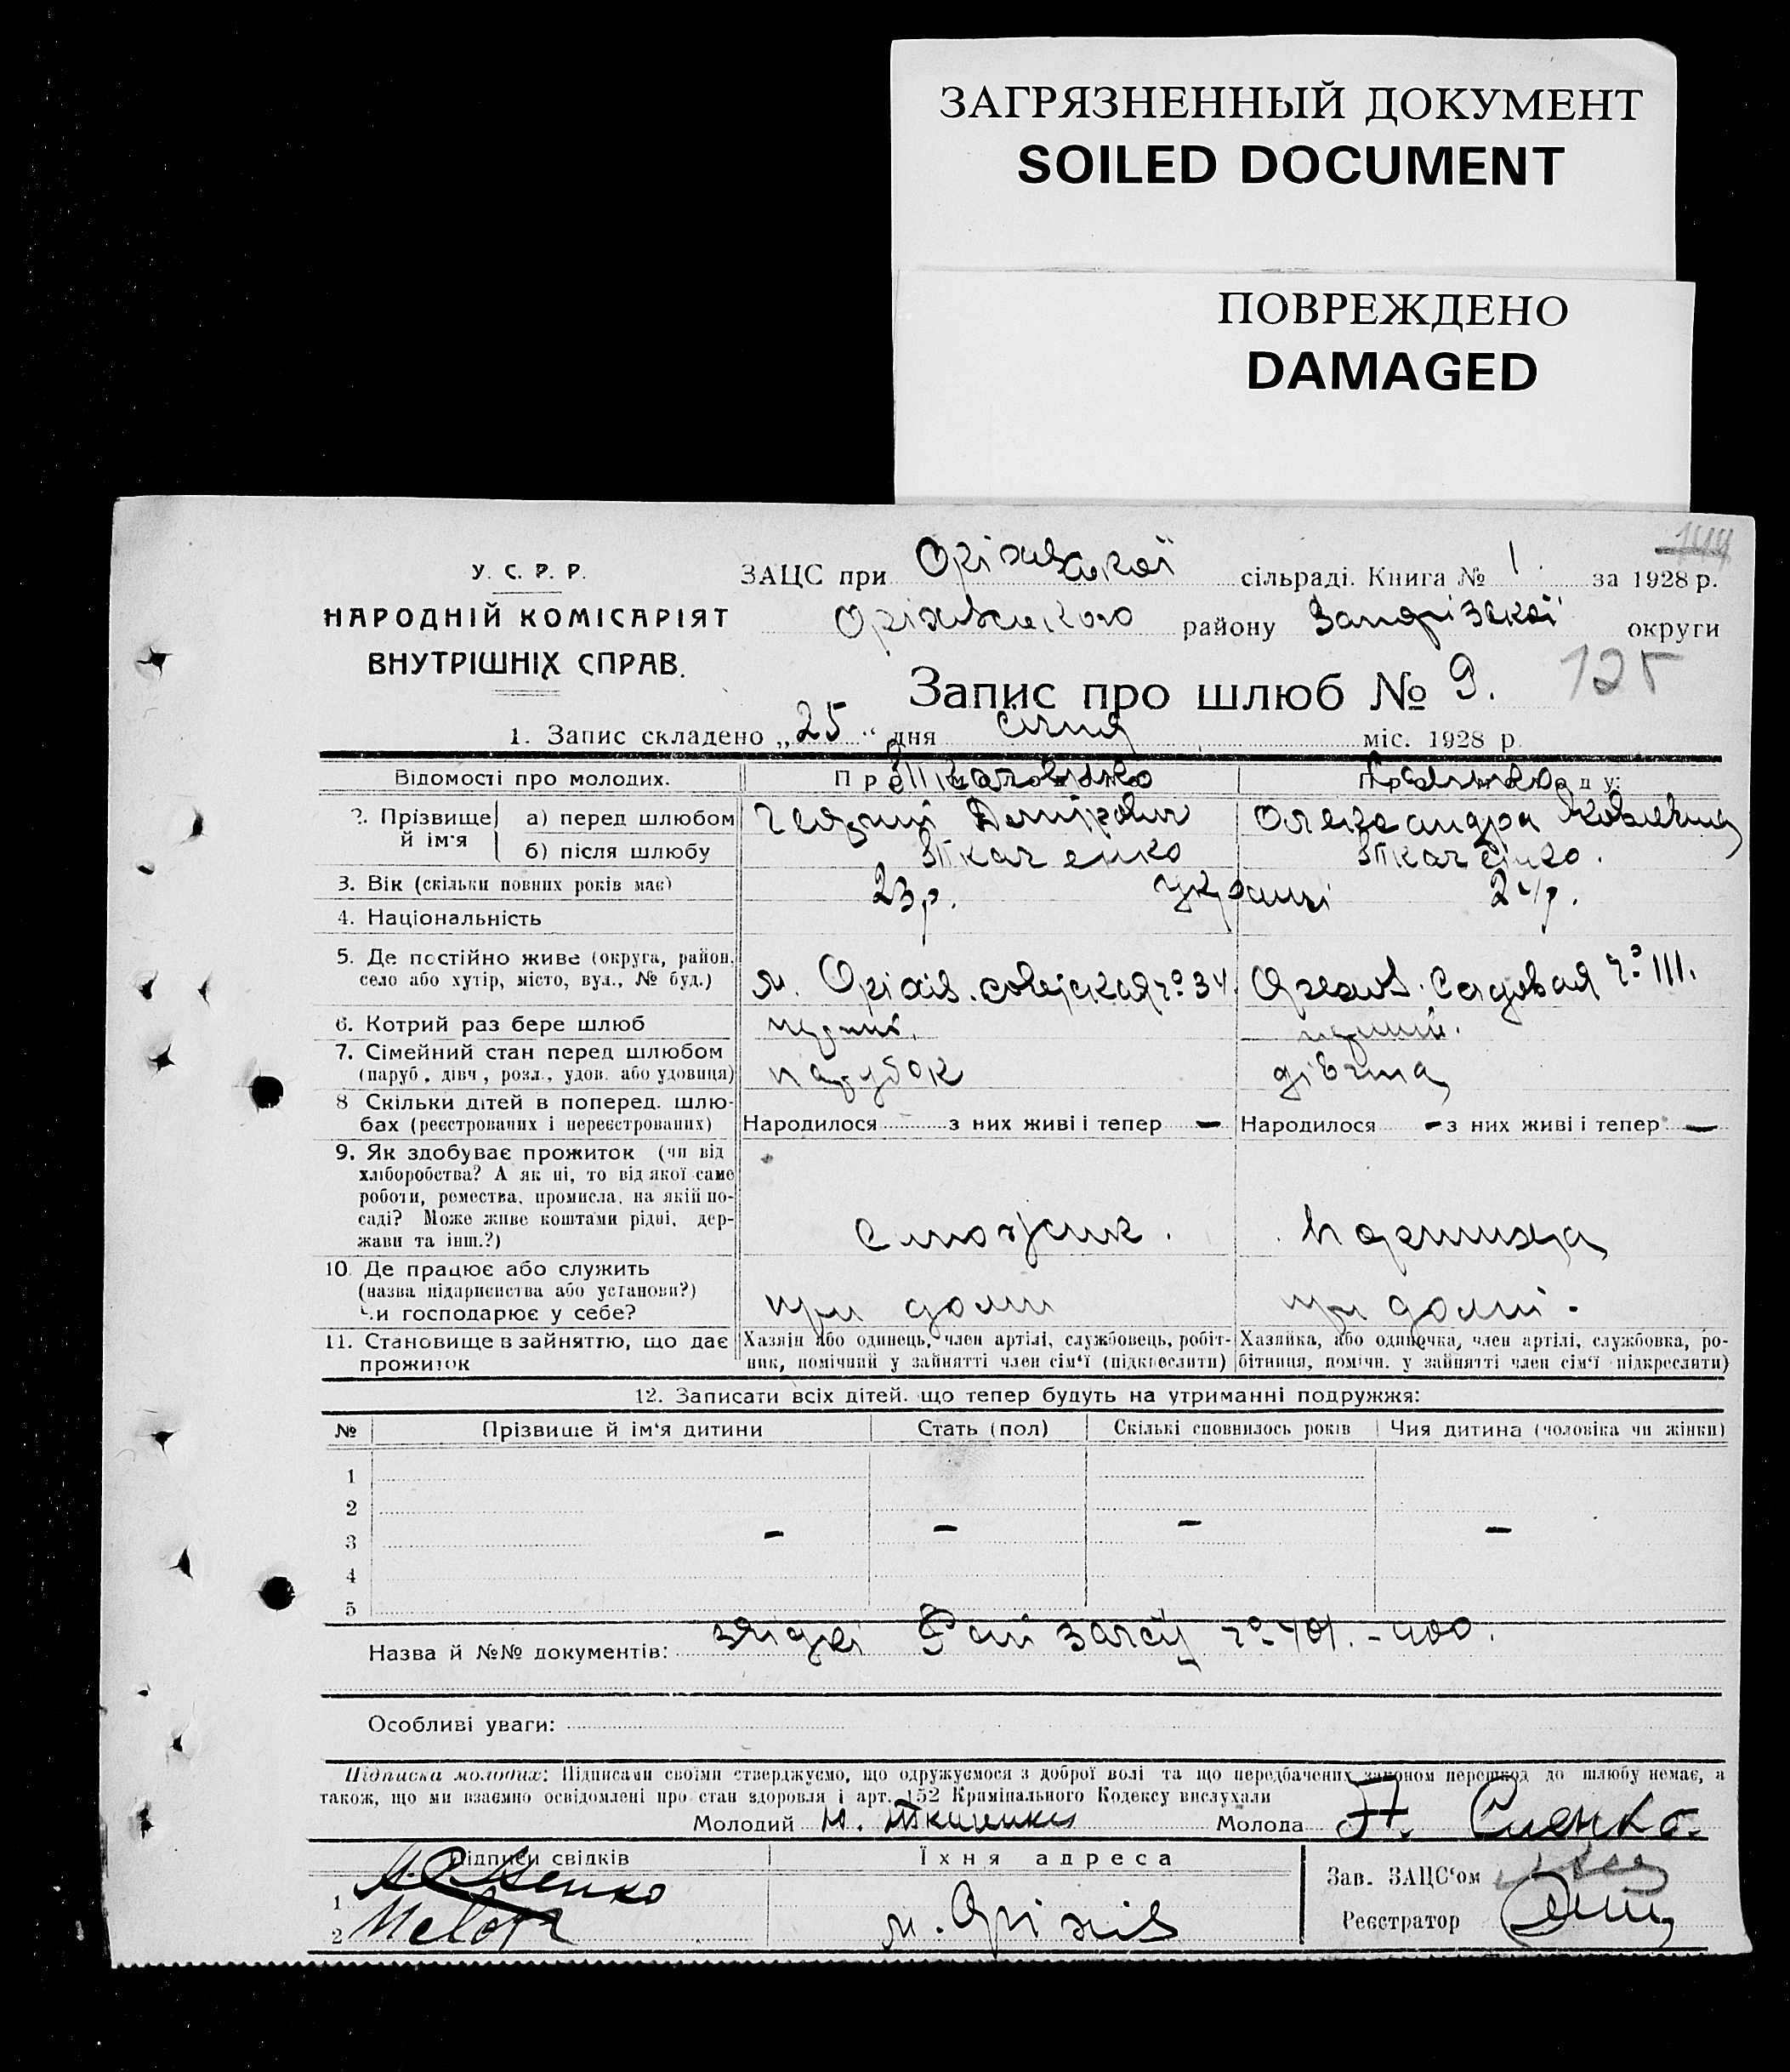 ЗАГРЯЗНЕННЫЙ ДОКУМЕНТ
SOILED DOCUMENT
ПОВРЕЖДЕНО
DAMAGED
144
У. С. Р. Р.
НАРОДНІЙ КОМІСАРІЯТ
ВНУТРІШНІХ СПРАВ.
ЗАЦС при Оріхівської сільраді. Книга № 1. за 1928 р.
Оріхівського району Запорізької округи
Запис про шлюб № 9. 125
1. Запис складено „25“ дня січня міс. 1928 р.
Відомості про молодих.
2. Прізвище й ім'я
а) перед шлюбом
Олександра Яковлевна
б) після шлюбу
Ткаченко
Ткаченко.
3. Вік (скільки повних років має)
23 р.
24 р.
4. Національність
українці
5. Де постійно живе (округа, район, село або хутір, місто, вул., № буд.)
м. Оріхів. совєтская № 34.
Орехов. Садовая № 111.
6. Котрий раз бере шлюб
перший.
перший.
7. Сімейний стан перед шлюбом (паруб., дівч., розл., удов. або удовиця)
парубок
дівчина
8 Скільки дітей в поперед. шлюбах (реєстрованих і нереєстрованих)
Народилося з них живі і тепер —
Народилося — з них живі і тепер —
9. Як здобуває прожиток (чи від хліборобства? А як ні, то від якої саме роботи, ремества, промисла, на якій посаді? Може живе коштами рідні, держави та інш.?)
10. Де працює або служить (назва підприємства або установи?) Чи господарює у себе?
при доми
при домі.
11. Становище в зайняттю, що дає прожиток
Хазяїн або одинець, член артілі, службовець, робітник, помічний у зайнятті член сім'ї (підкреслити)
Хазяйка, або одиночка, член артілі, службовка, робітниця, помічн. у зайнятті член сім'ї підкреслити)
12. Записати всіх дітей. що тепер будуть на утриманні подружжя:
№ Прізвище й ім'я дитини Стать (пол) Скількі сповнилось років Чия дитина (чоловіка чи жінки)
1
2
3 — — — —
4
5
Назва й №№ документів: Рай загсу № 401. - 400.
Особливі уваги:
Підписка молодих: Підписами своїми стверджуємо, що одружуємося з доброї волі та що передбачених законом перешкод до шлюбу немає, а
також, що ми взаємно освідомлені про стан здоровля і арт. 152 Кримінального Кодексу вислухали
Молодий Ю. Ткаченко Молода
Підписи свідків
Їхня адреса
1
2
м. Оріхів
Зав. ЗАЦС'ом
Реєстратор